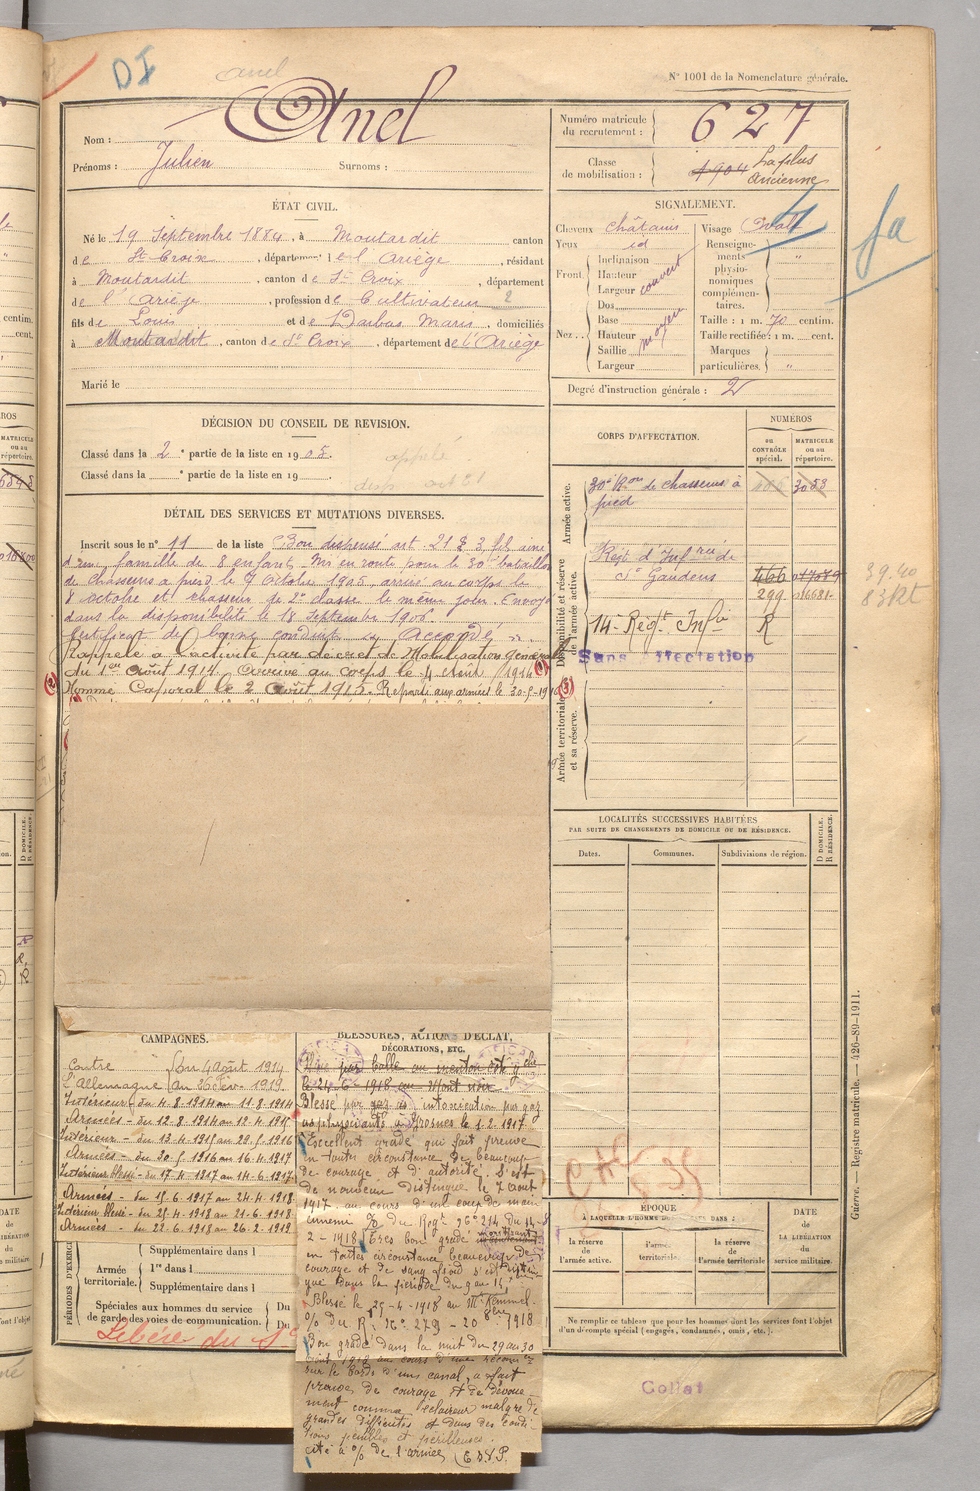 DI
Anel
N° 1001 de la Nomenclature générale.
Nom : Anel
Prénoms : Julien Surnoms :
Numéro matricule du recrutement : 627
Classe de mobilisation : 1904 La plus Ancienne
ÉTAT CIVIL.
Né le 19 Septembre 1884, à Montardit canton
de Ste Croix, département de l'Ariège, résidant
à Montardit, canton de Ste Croix, département
de l'Ariège, profession de Cultivateur 2
fils de Louis et de Darbas Marie, domiciliés
à Montardit, canton de Ste Croix, département de l'Ariège
Marié le
SIGNALEMENT.
Cheveux châtains Visage Ovale
Yeux id
Front Inclinaison
Hauteur
Largeur couvert
Nez Dos
Base
Hauteur moyen
Saillie
Largeur
Renseignements physionomiques complémentaires. "
Taille : 1 m. 70 centim.
Taille rectifiée : 1 m. cent.
Marques particulières. "
Degré d'instruction générale : 2
fa
DÉCISION DU CONSEIL DE REVISION.
Classé dans la 2e partie de la liste en 1905.
Classé dans la e partie de la liste en 19
appelé
CORPS D'AFFECTATION.
NUMÉROS
au CONTRÔLE spécial.
MATRICULE ou au répertoire.
Armée active.
30e Bon de chasseurs à 3053
pied
Disponibilité et réserve de l'armée active.
Régt d'Infrie de
St Gaudens 466 017089
299 016681
14e Régt Infie R
Sans affectation
39.40
Armée territoriale et sa réserve.
DÉTAIL DES SERVICES ET MUTATIONS DIVERSES.
Inscrit sous le n° 11 de la liste Bon dispensé art 21 § 3 fils aîné
d'une famille de 8 enfants. Mis en route pour le 30e bataillon
de chasseurs à pied le 7 Octobre 1905, arrivé au corps le
8 octobre et chasseur de 2e classe le même jour. Envoyé
dans la disponibilité le 18 Septembre 1906.
Certificat de bonne conduite Accordé
Rappelé à l'activité par décret de Mobilisation Générale
du 1er Août 1914. Arrivé au corps le 4 Août 1914
Nommé Caporal le 2 Août 1915. Reparti aux armées le 30-5-1916
LOCALITÉS SUCCESSIVES HABITÉES
PAR SUITE DE CHANGEMENTS DE DOMICILE OU DE RÉSIDENCE.
Dates. Communes. Subdivisions de région. D DOMICILE. R RÉSIDENCE.
CAMPAGNES.
Contre du 4 août 1914
L'Allemagne au 26 Fév. 1919.
Intérieur du 4-8-1914 au 11-8-1914
Armées - du 12-8-1914 au 12-4-1915
Intérieur - du 13-4-1915 au 29-5-1916
Armées - du 30-5-1916 au 16-4-1917
Intérieur blessé - du 17-4-1917 au 14-6-1917
Armées - du 15-6-1917 au 24-4-1918
Intérieur blessé - du 25-4-1918 au 21-6-1918
Armées - du 22-6-1918 au 26-2-1919
BLESSURES, ACTIONS D'ÉCLAT,
DÉCORATIONS, ETC.
par balle au menton côté gche
le 24 1918 au Mont noir
Blessé par gaz intoxication par gaz
asphyxiants à Prosnes le 1-2-1917
Excellent gradé qui fait preuve
en toutes circonstances de beaucoup
de courage et d'autorité. S'est
de nouveau distingué le 7 Août
1917 au cours d'un coup de main
ennemi % du Régt N° 214 du 14-
2-1918. Très bon gradé montrant
en toutes circonstances beaucoup de
courage et de sang froid s'est distin-
gué dans la période du 9 au 15
Blessé le 25-4-1918 au Mt Kemmel.
% du R. N° 279 - 20 1918
Bon gradé dans la nuit du 29 au 30
août 1918 au cours d'une reconn
sur le bord d'un canal, a fait
preuve de courage et de dévoue-
ment comme éclaireur malgré de
grandes difficultés et dans des condi-
tions pénibles et périlleuses.
cité à % de l'armée
PÉRIODES D'EXERCICES
Armée territoriale.
Supplémentaire dans l
1re dans l
Supplémentaire dans l
Spéciales aux hommes du service Du
de garde des voies de communication. Du
Libéré du S
ÉPOQUE
À LAQUELLE L'HOMME
la réserve de l'armée active.
l'armée territoriale.
la réserve de l'armée territoriale
DATE DE LA LIBÉRATION du service militaire.
Ne remplir ce tableau que pour les hommes dont les services font l'objet
d'un décompte spécial (engagés, condamnés, omis, etc.).
Collat
Guerre. — Registre matricule. — 426-89-1911.